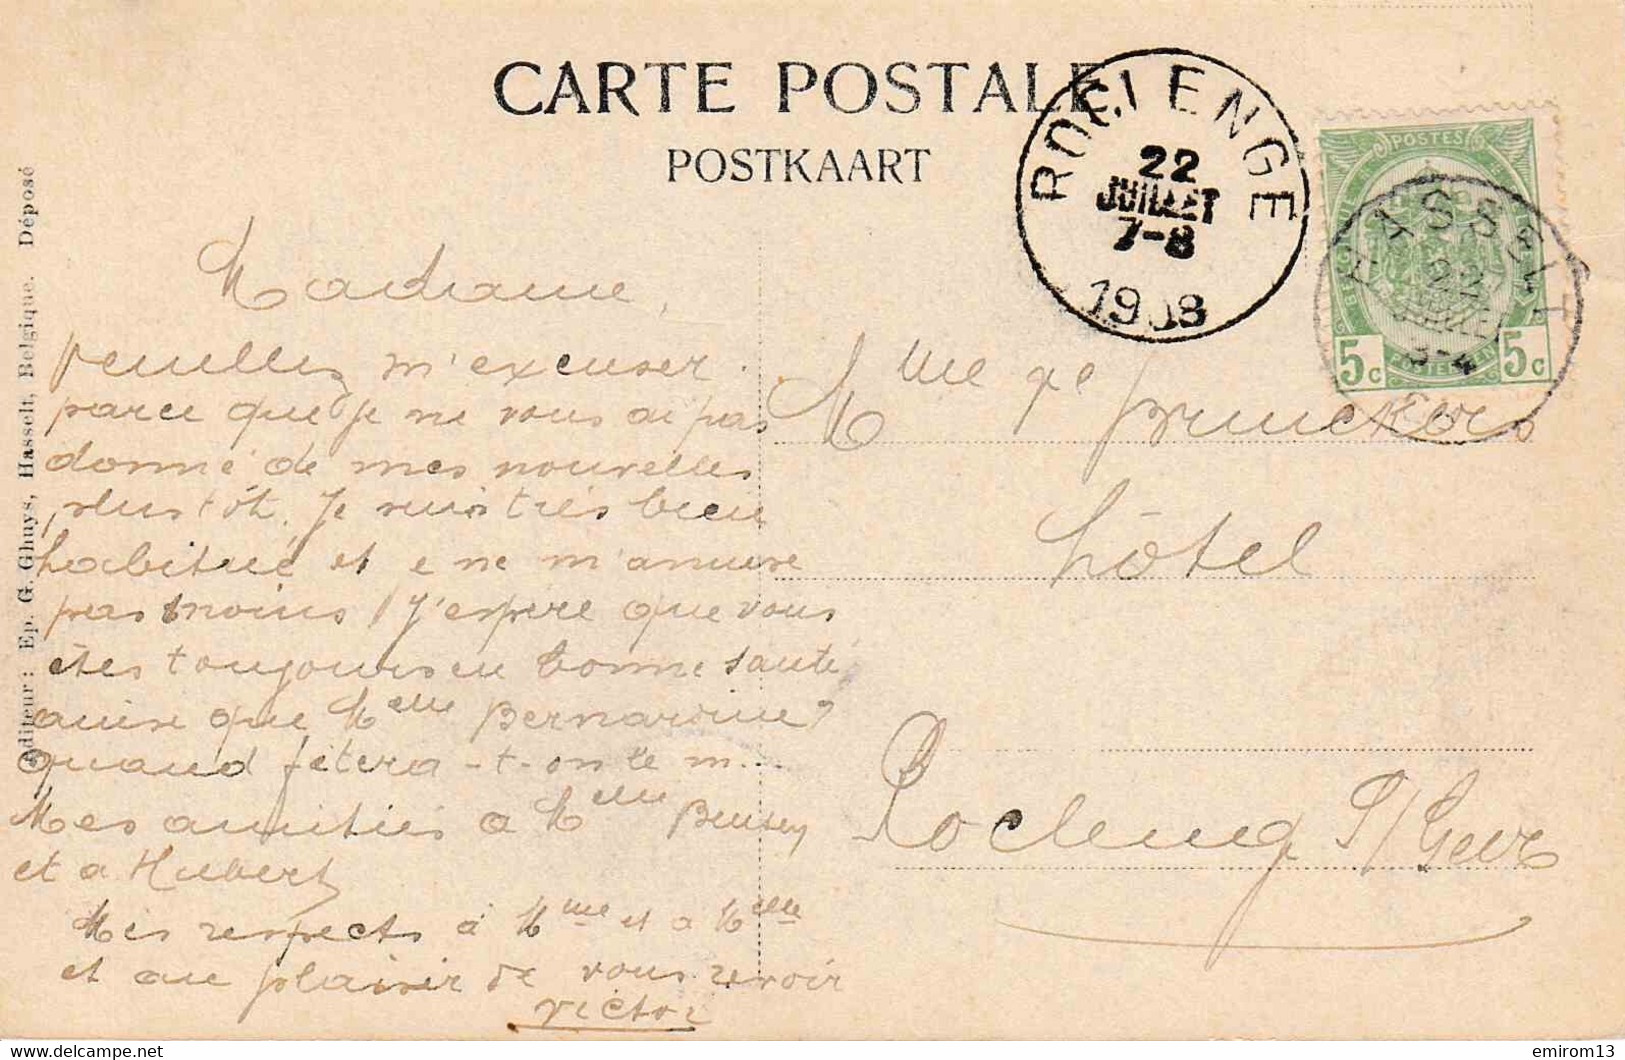 CARTE POSTALE
POSTKAART
Editeur: Ep. G. Ghuys, Hasselt, Belgique. Déposé
ROCLENGE
22
JUILLET
7-8
1908
POSTES
HASSELT
22
JUILLET
3-4
5c 5c
POSTERIJEN
Madame,
veuillez m'excuser
parce que je ne vous ai pas
donné de mes nouvelles
plus tôt. Je suis très bien
habitué et ne m'amuse
pas moins. J'espère que vous
êtes toujours en bonne santé
ainsi que Melle Bernardine?
quand fêtera-t-on le m...
Mes amitiés à Melle
et à Hubert
Mes respects à Mme et à Melle
et au plaisir de vous revoir
Victor
Mme
hôtel
Roclenge s/Geer
delcampe.net
emirom13